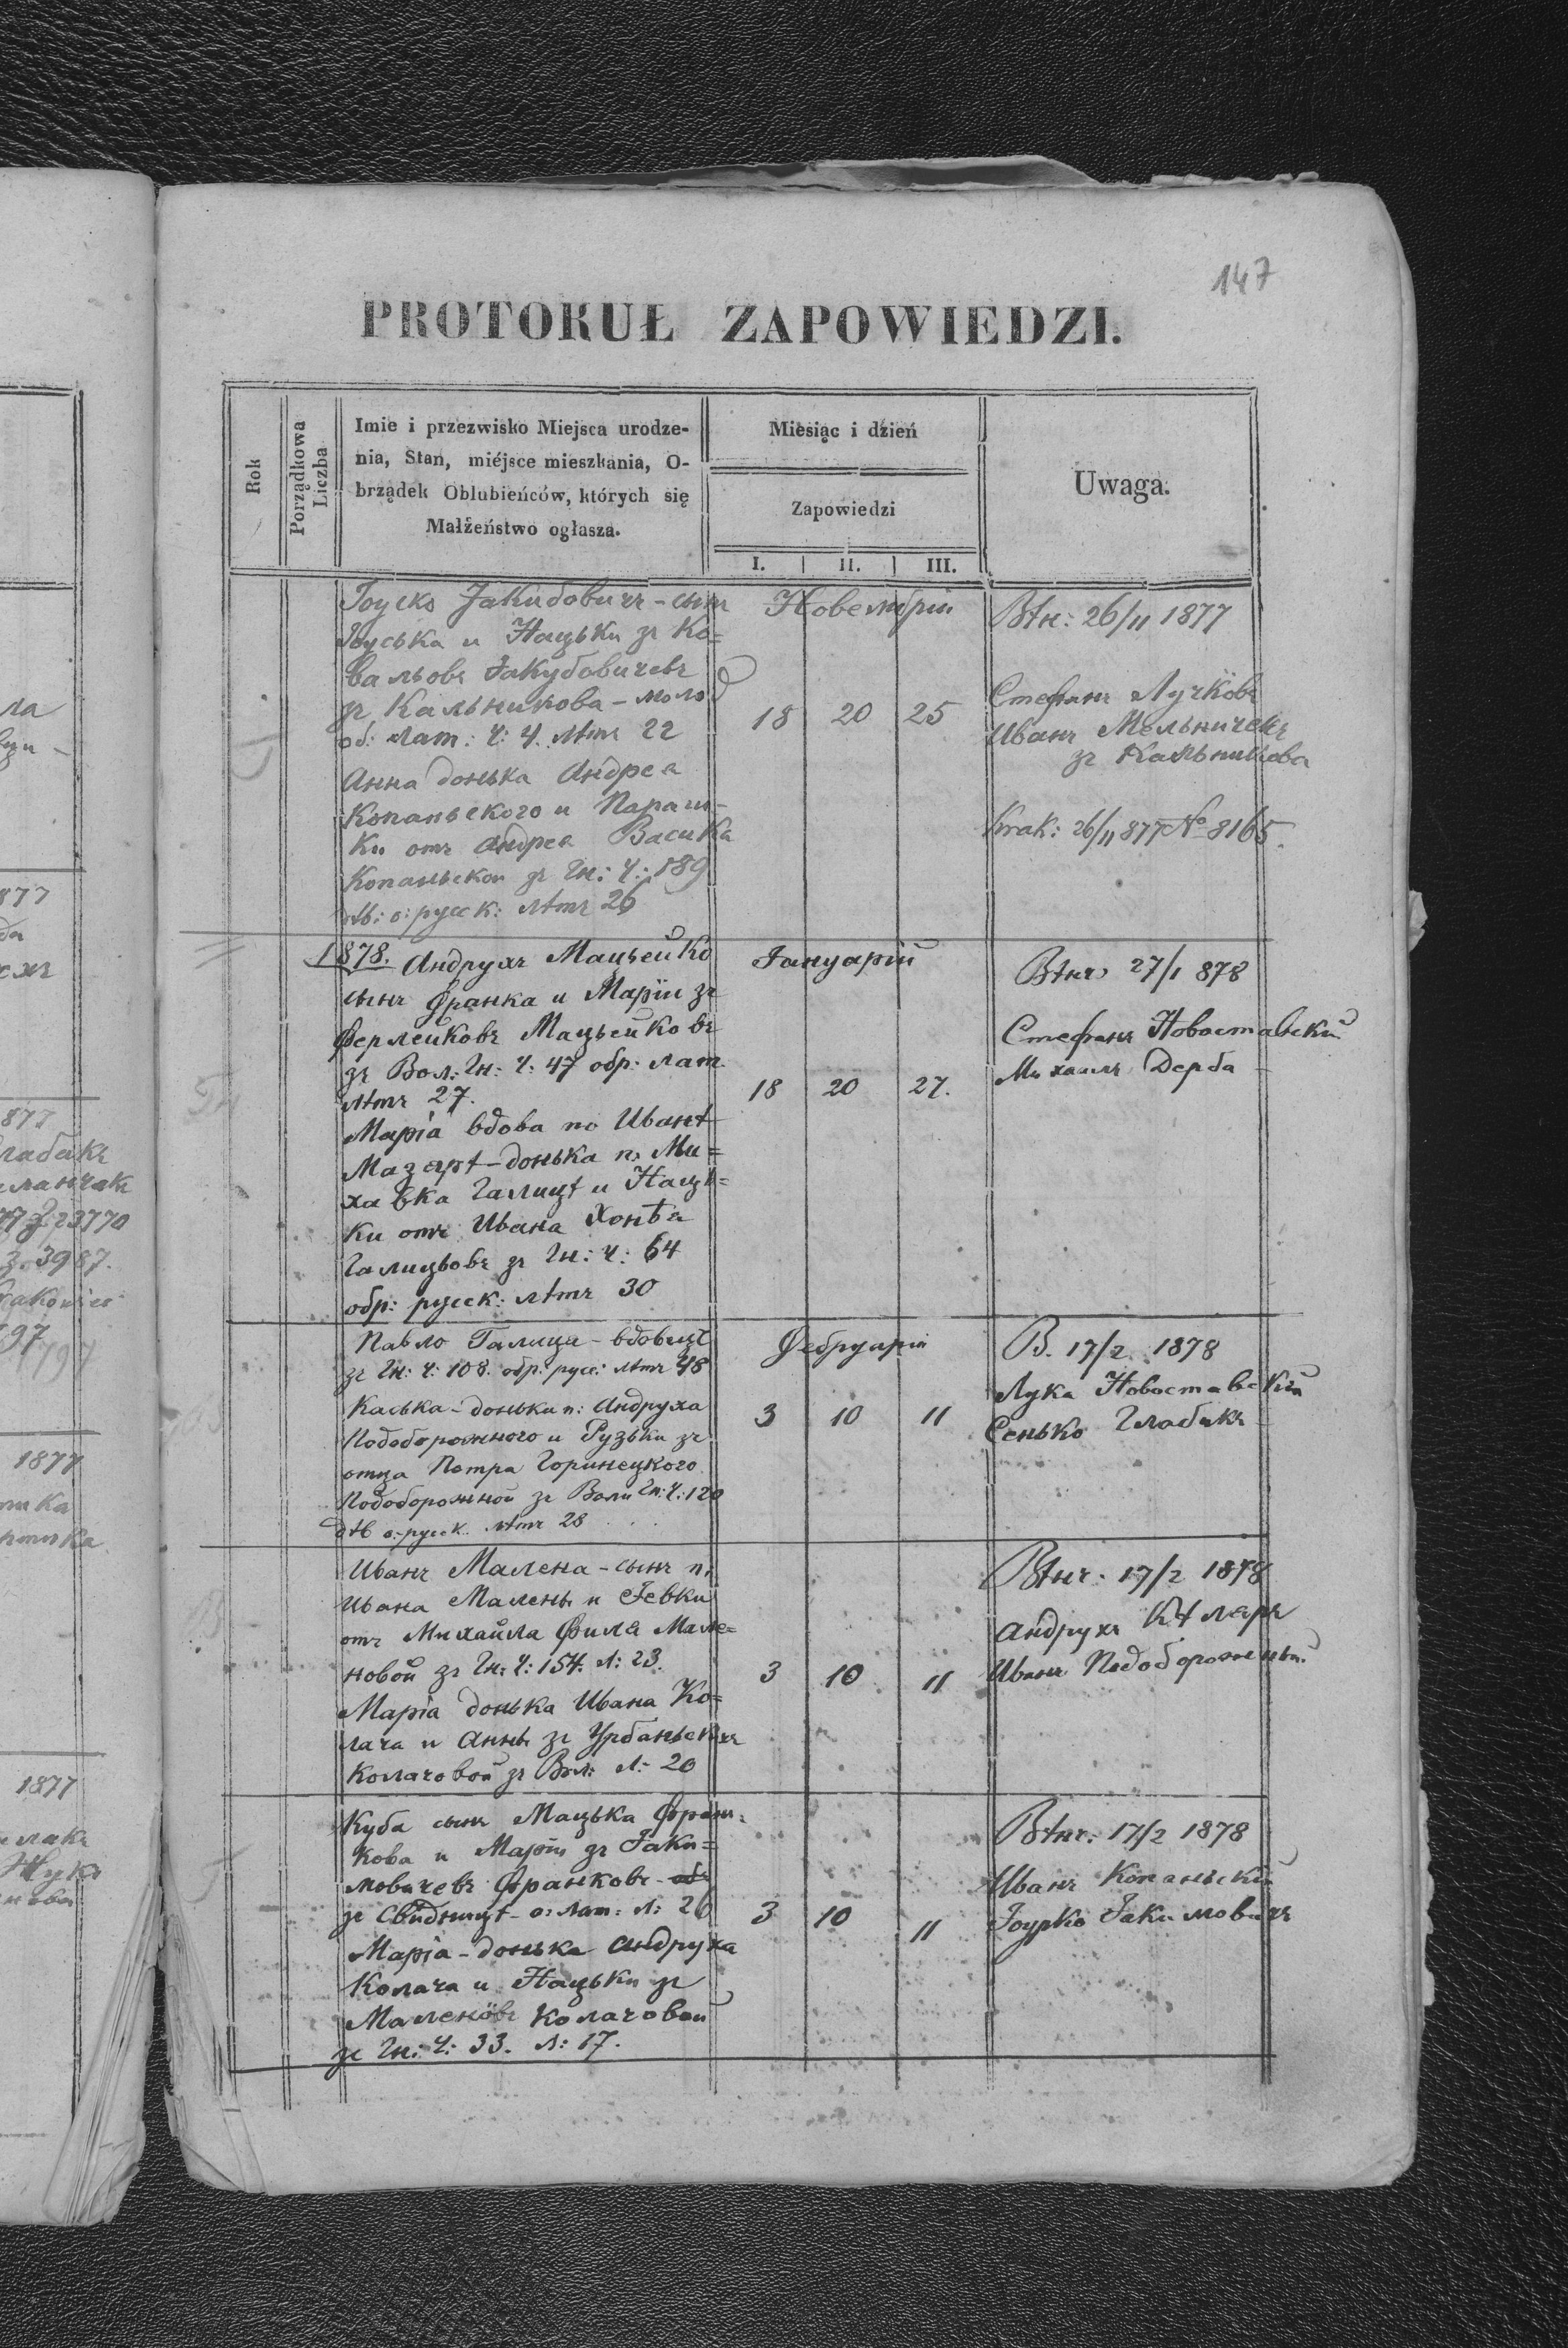 147
PROTOKUŁ ZAPOWIEDZI.
Rok
Porządkowa Liczba
Imie i przezwisko Miejsca urodze-
nia, Stan, miéjsce mieszkania, O-
brządek Oblubieńców, których się
Małżeństwo ogłasza.
Miesiąc i dzień
Zapowiedzi
I. II. III.
Uwaga.
сынъ
и Нацьки зъ Ко=
вальовъ Іакубовичевъ
зъ Кальникова - молод
об: лат: Ч: 4. лѣтъ 22
Анна донька Андрея
Копаньского и Параш-
ки отъ Андрея Васика
Копаньской зъ Гн: Ч: 189
дѣв: о: русск: лѣтъ 26
Новембрій
18 20 25
Вѣн: 26/11 1877
Стефанъ Лучковъ
Иванъ Мельничекъ
зъ Кальникова
Krak: 26/11 877 No 8165.
1878. Андрухъ Мацьейко
сынъ Франка и Маріи зъ
Ферлейковъ Мацьейковъ
зъ Вол: Гн: Ч: 47 обр: лат.
лѣтъ 27.
Марія вдова по Иванѣ
Мазярѣ - донька п. Ми=
хавка Галицѣ и Наць=
ки отъ Ивана
Галицьовъ зъ Гн: Ч: 64
обр: русск: лѣтъ 30
Іануарій
18 20 27.
Вѣнч 27/1 878
Стефанъ Новоставскій
Михаилъ Дерба
Павло Галица - вдовецъ
зъ Гн: Ч: 108. обр: русс: лѣтъ 48
Каська - донька п: Андруха
Подобороженого и Рузьки зъ
отца Петра Горинецкого
Подоборожной зъ Воли Гн: Ч: 120
дѣв о: русск. лѣтъ 28
Фебруарій
3 10 11
В. 17/2 1878
Лука Новоставскій
Сенько Глабикъ
Иванъ Малена - сынъ п.
Ивана Малены и Іевки
отъ Михайла Филя Мале=
новой зъ Гн: Ч: 154. Л: 23.
Марія донька Ивана Ко=
лача и Анны зъ Урбаньскихъ
Колачовой зъ Вол: Л: 20
3 10 11
Вѣнч. 17/2 1878
Андрухъ
Иванъ Подобороженый
Куба сынъ Мацька Фран-
кова и Маріи зъ Іаки=
мовичевъ Франковъ - обр
зъ Свидницѣ - о: лат: Л: 26
Марія - донька Андруха
Колача и Нацьки зъ
Маленовъ Колачовой
зъ Гн: Ч: 33. Л: 17.
3 10 11
Вѣнч: 17/2 1878
Иванъ Копаньскій
Іакимовичъ
1877
1877